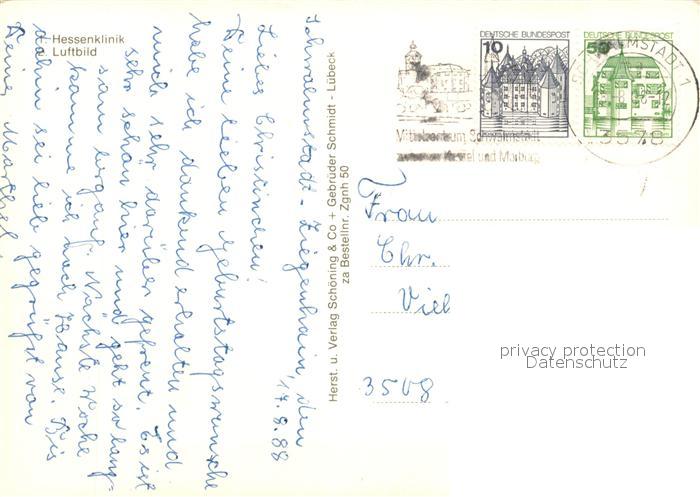 Hessenklinik
Luftbild
Schwalmstadt-Ziegenhain, den
17.8.88
Liebes Christinchen!
Deine lieben Geburtstagswünsche
habe ich dankend erhalten und
mich sehr darüber gefreut. Es ist
sehr schön hier und geht so lang-
sam bergauf. Nächste Woche
komme ich nach Hause. Bis
dahin sei lieb gegrüßt von
Deine
Herst. u. Verlag Schöning & Co + Gebrüder Schmidt - Lübeck
za Bestellnr. Zgnh 50
DEUTSCHE BUNDESPOST
10
DEUTSCHE BUNDESPOST
50
SCHWALMSTADT 1
3578
Mittelzentrum Schwalmstadt
Kassel und Marburg
Frau
Chr.
Viel
3508
privacy protection
Datenschutz